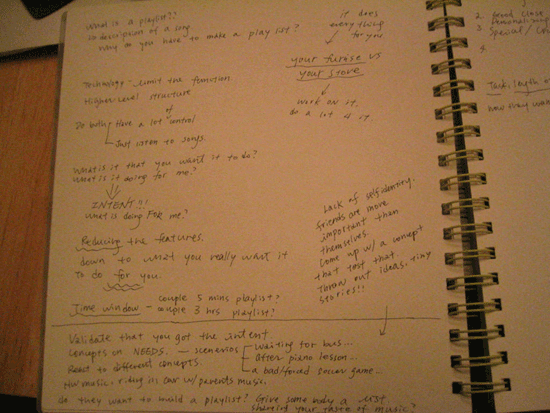 What is a playlist?!
description of a song
why do you have to make a play list?
it does
everything
for you
your purpose vs
your store
work on it.
do a lot 4 it.
Technology - limit the function
Higher level structure
Do both
Have a lot of control
Just listen to songs.
What is it that you want it to do?
What is it doing for me?
INTENT!!!
What is doing FOR me?
Reducing the features.
down to what you really want it
To do for you.
Time window - couple 3 mins playlist?
couple 3 hrs playlist?
Lack of self identity.
friends are more
important than
themselves.
Come up w/ a concept
that test that
Throw out ideas. tiny
stories!!
Validate that you got the intent
Concepts on NEEDS. — scenarios
waiting for bus...
after piano lesson...
a bad/forced soccer game...
React to different concepts.
music. riding in car w/ parents music.
do they want to build a playlist? Give some body a list
sharing your taste of music?
2.
3.
Special /
4.
Task, length of
how they wa